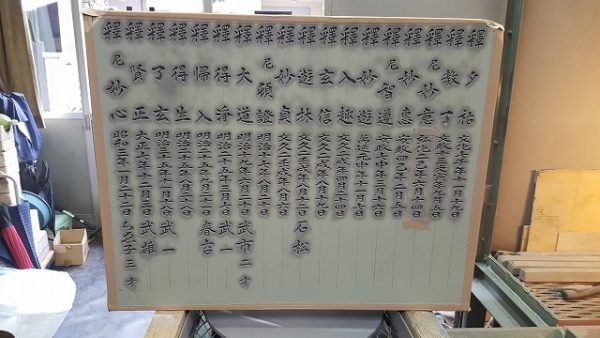 釋夕祐 文化七年十一月十九日
釋教了 文政十三寅年
釋尼妙意 弘化二巳年八月十四日
釋妙恵 安政四巳年二月五日
釋尼智導 安政七申年二月六日
釋妙遊 萬延元申年十一月六日
釋入趣 文久二戌年四月二十四日
釋玄信 文久二戌年八月十九日
釋遊林 文久二壬戌年八月十二日 石松
釋妙貞 文久二壬戌年八月六日
釋尼頓證 明治十七年八月二日
釋大道 明治十九年八月二日 武市二才
釋得淨 明治二十五年三月七日 武一
釋歸入 明治二十五年八月二十一日 春吉
釋得生 明治三十年
釋了玄 明治三十五年一月十六日 武一
釋賢正 大正六年十二月三日 武雄
釋尼妙心 昭和三年一月二十二日 ちゑ子三才